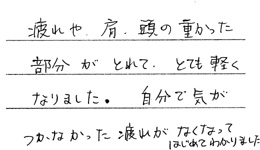 疲れや、肩、頭の重かった
部分がとれて、とても軽く
なりました。自分で気が
つかなかった疲れがなくなって
はじめてわかりました